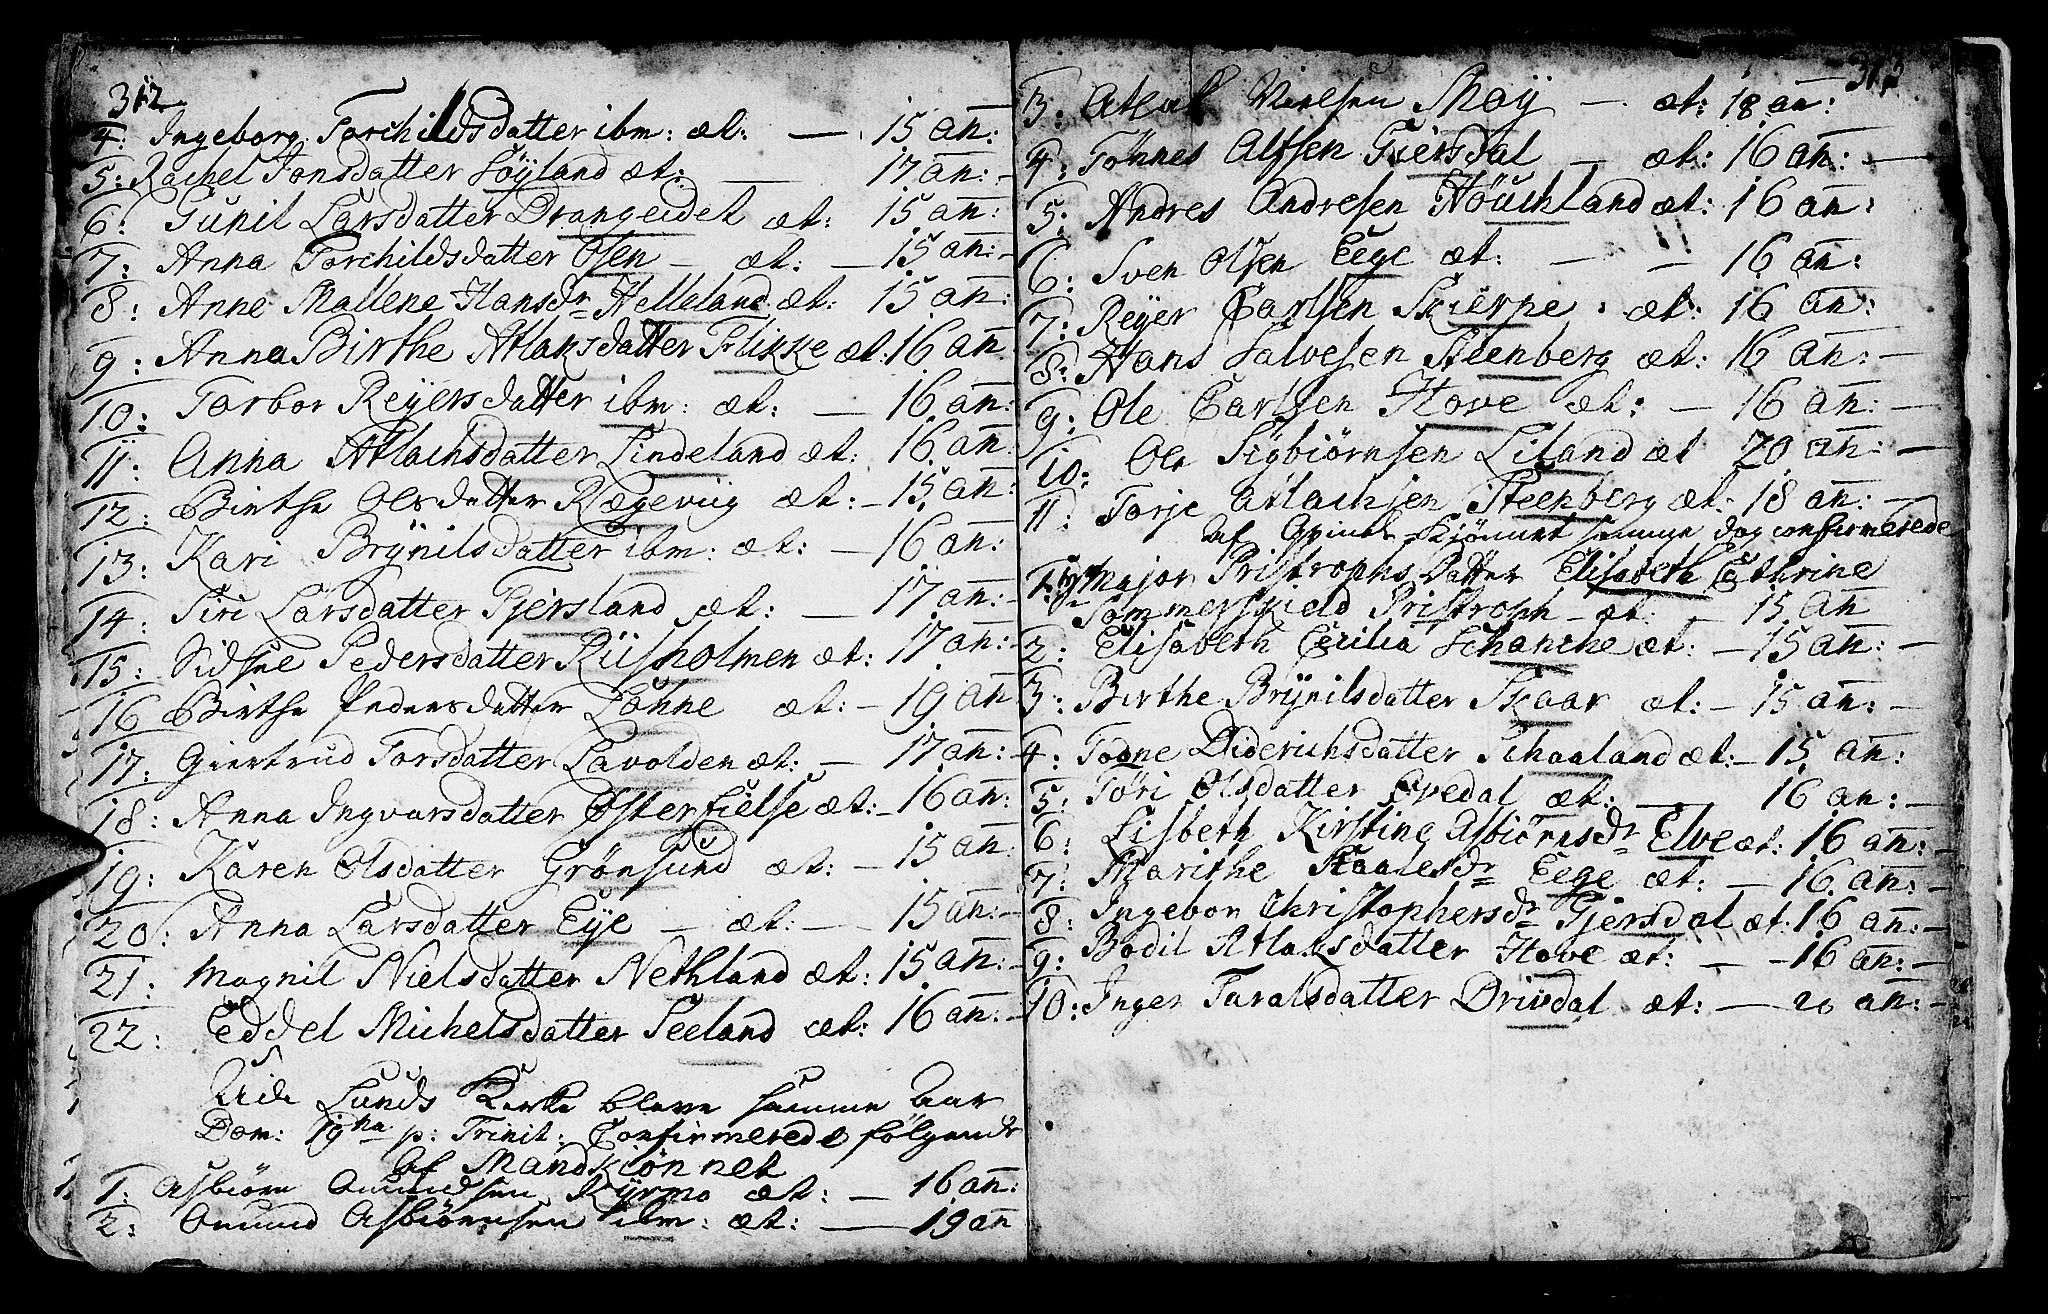 312
4: Ingeborg Torchildsdatter ibm: æt: — 15 an:
5: Rachel Jonsdatter Söyland æt: — 17 an:
6: Gunil Larsdatter Drangeidet æt: 15 an:
7: Anna Torchildsdatter Olsen — æt: — 15 an:
8: Anne Mallene Hansdr Helleland æt: 15 an:
9: Anna Birthe Atlaksdatter Flikke æt: 16 an
10: Torbor Reÿersdatter ibm: æt: — 16 an:
11: Anna Atlachsdatter Lindeland æt: 16 an:
12: Birthe Olsdatter Rægeviig æt: — 15 an:
13: Kari Brÿnilsdatter ibm: æt: — 16 an:
14: Siri Larsdatter Tjersland æt: — 17 an:
15: Sidsele Pedersdatter Rüsholmen æt: 17 an:
16 Birthe Pedersdatter Löhne æt: — 19 an
17: Giertrud Torsdatter Lavolden æt: — 17 an:
18: Anna Ingvarsdatter Österfielse æt: — 16 an:
19: Karen Olsdatter Grönsund æt: — 15 an:
20: Anna Larsdatter Eÿe — æt: — 15 an:
21: Magnil Nielsdatter Nethland æt: 15 an:
22: Eddel Michelsdatter Seeland æt: 16 an:
Udi Lunds Kirke bleve samme Aar
Dom: 19na p: Trinit: Confirmerede fölgende
af Mandkiönnet
1: Asbiörn Omundsen Rÿrmo æt: — 16 an:
2: Omund Asbiörnsen ibm: æt: — 19 an
313
3: Atlak Nielsen Moÿ — æt: 18 an:
4: Tönnes Alfsen Giersdal — æt: 16 an: —
5: Andres Andresen Höuchland æt: 16 an:
6: Sven Olsen Eege æt: — — 16 an:
7: Reÿer Carlsen Skierpe æt: 16 an:
8: Hans Salvesen Steenberg æt: 16 an: —
9: Ole Carlsen Hove æt: — 16 an: —
10: Ole Sigbiörnsen Liland æt 20 an: —
11: Torje Atlachsen Steenberg æt: 18 an: —
af Qvinde Kjönnet samme dag confirmerede
1: Major Pristrophs Datter Elisabeth Cathrine
Sommerskield Pristroph — æt: — 15 an
2: Elisabeth Cecilia Schanche æt: — 15 an: —
3: Birthe Brÿnilsdatter Skaar æt: — 15 an: —
4: Tonne Diderichsdatter Schaaland æt: — 15 an:
5: Töri Olsdatter Evedal æt: — 16 an: —
6: Lisbeth Kirstine Asbiörnsdr Elve æt: 16 an: —
7: Marithe Staalesdr Eege æt: — 16 an: —
8: Ingebor Christophersdr Gjersdal æt: 16 an: —
9: Bodil Atlaksdatter Hove æt: — 16 an: —
10: Inger Taralsdatter Drivdal æt: — 20 an: —